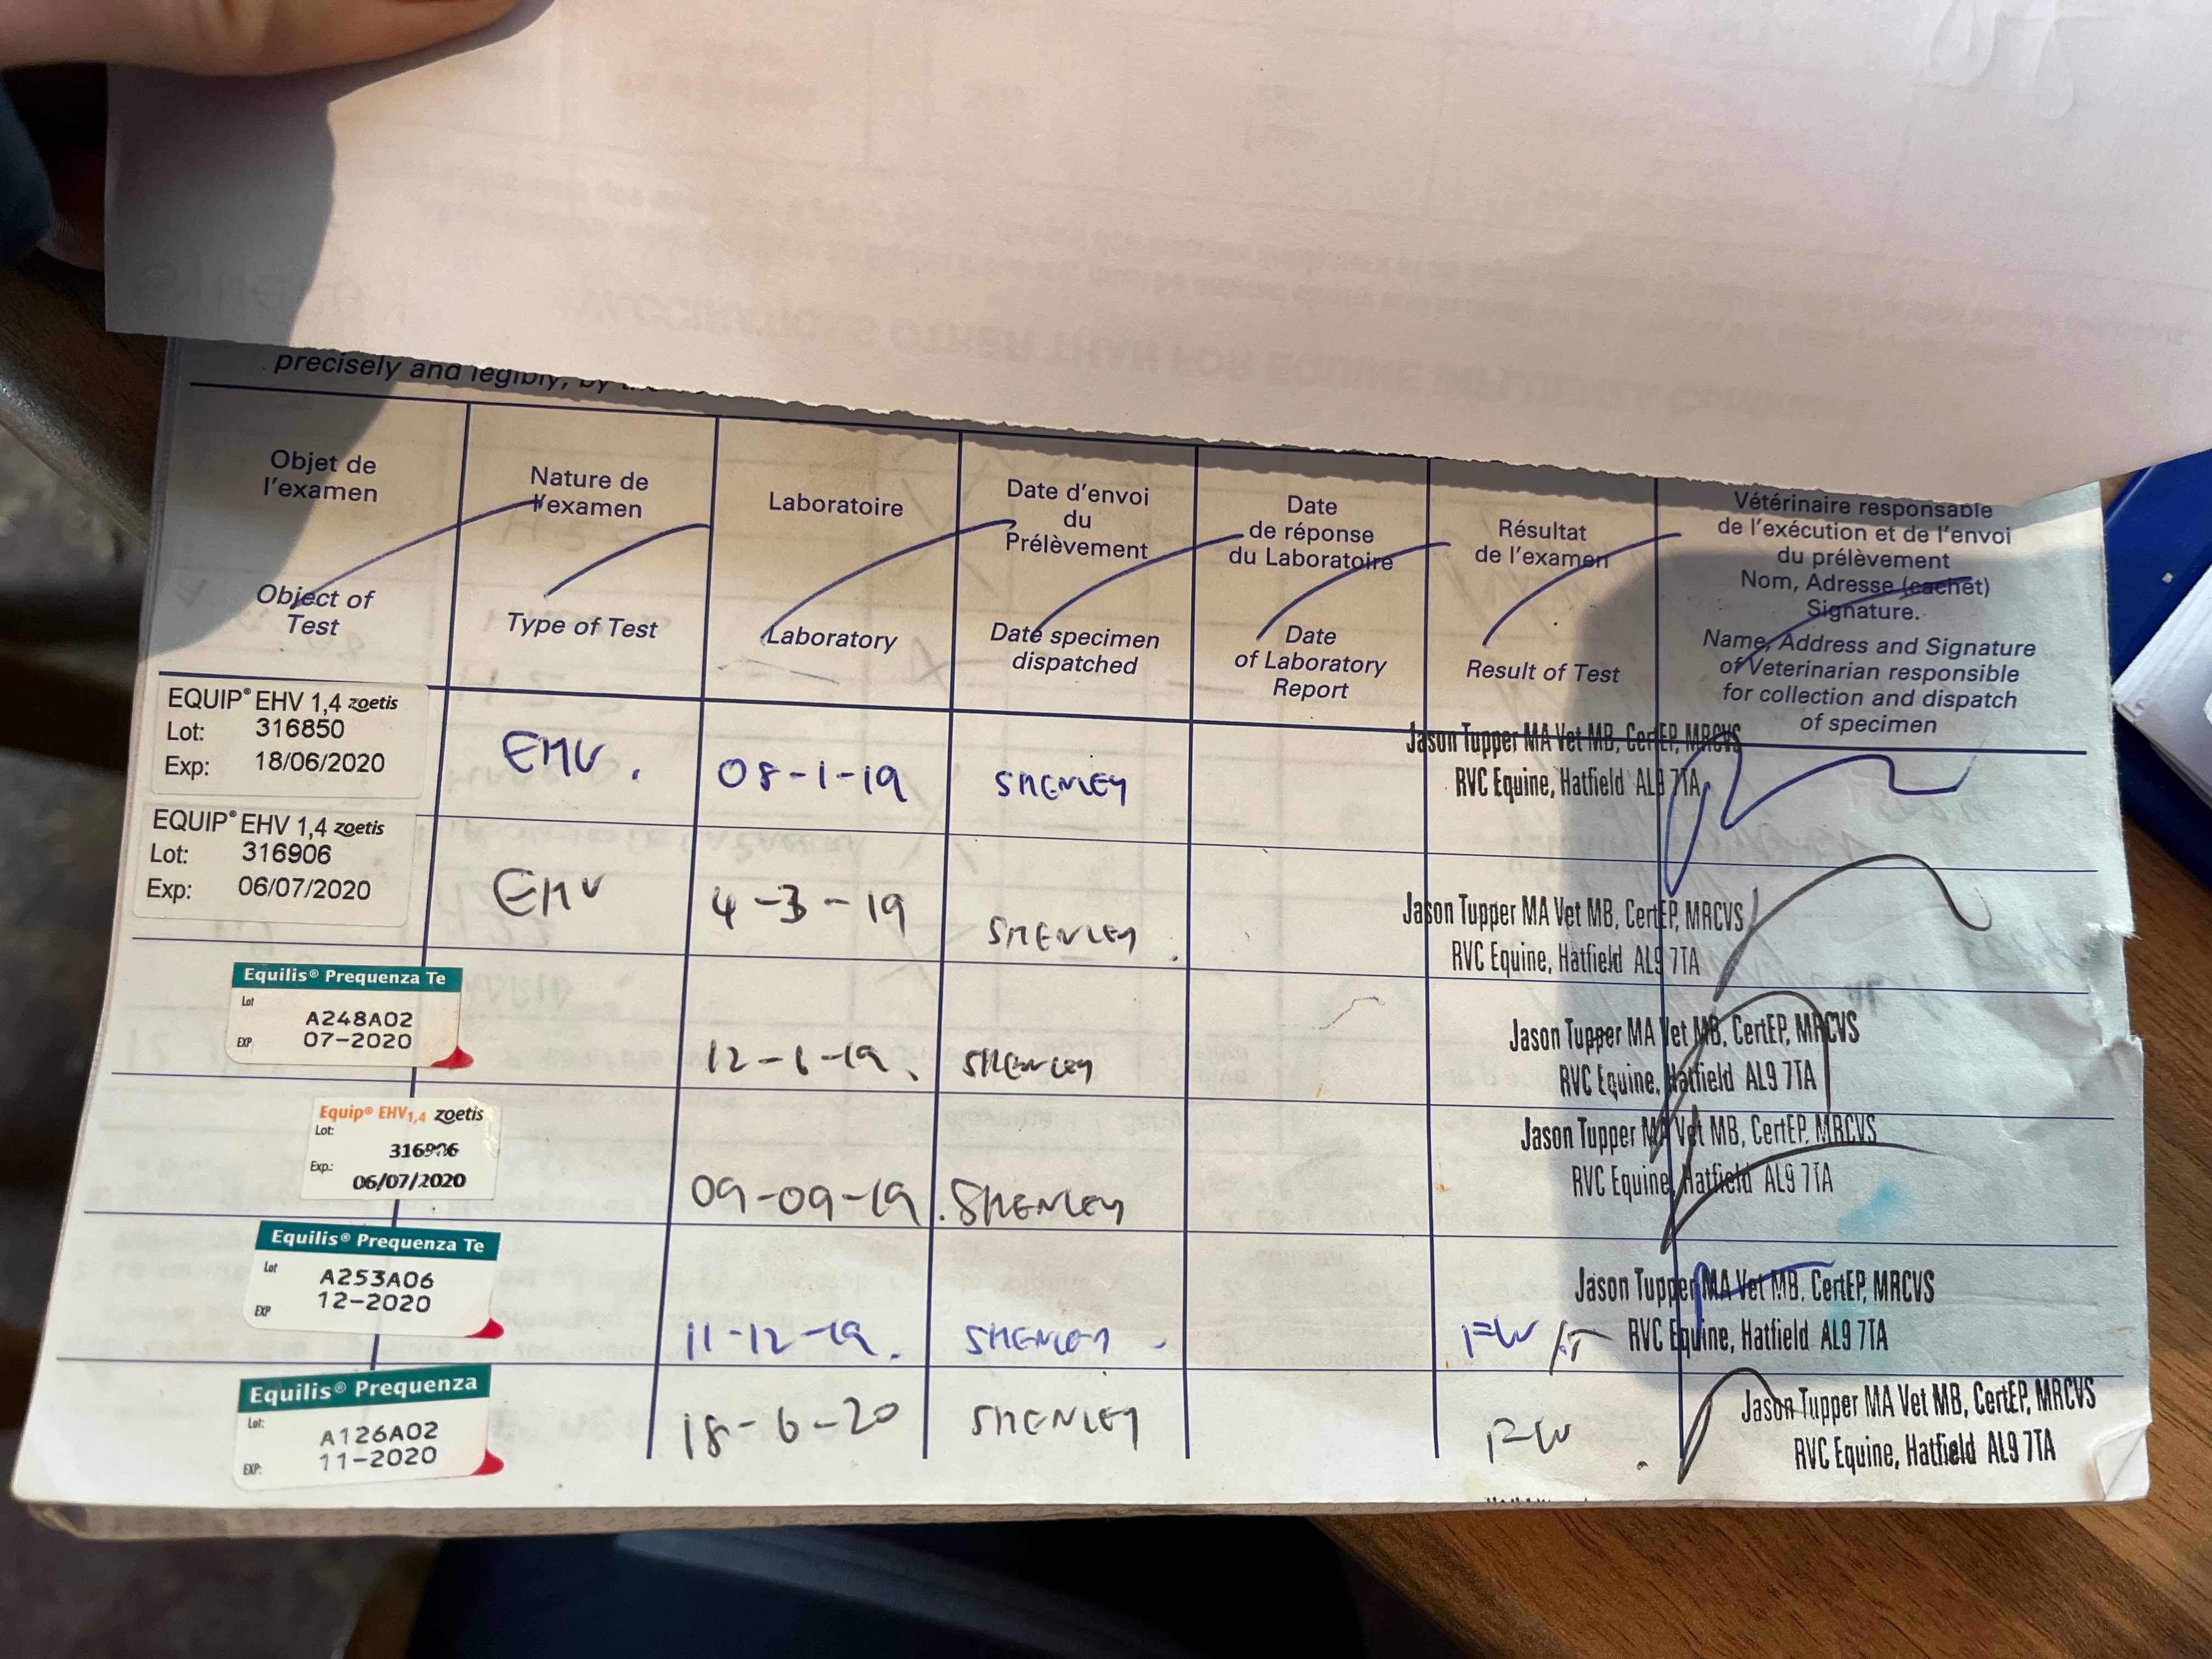 precisely and legibly, by
Objet de
l'examen
Object of
Test
Nature de
l'examen
Type of Test
Laboratoire
Laboratory
Date d'envoi
du
Prélèvement
Date specimen
dispatched
Date
de réponse
du Laboratoire
Date
of Laboratory
Report
Résultat
de l'examen
Result of Test
Vétérinaire responsable
de l'exécution et de l'envoi
du prélèvement
Nom, Adresse (cachet)
Signature.
Name, Address and Signature
of Veterinarian responsible
for collection and dispatch
of specimen
EQUIP® EHV 1,4 zoetis
Lot: 316850
Exp: 18/06/2020
EHV.
08-1-19
SHENLEY
Jason Tupper MA Vet MB, CertEP, MRCVS
RVC Equine, Hatfield AL9 7TA
EQUIP® EHV 1,4 zoetis
Lot: 316906
Exp: 06/07/2020
EHV
4-3-19
SHENLEY
Jason Tupper MA Vet MB, CertEP, MRCVS
RVC Equine, Hatfield AL9 7TA
Equilis® Prequenza Te
Lot A248A02
EXP 07-2020
12-6-19
SHENLEY
Jason Tupper MA Vet MB, CertEP, MRCVS
RVC Equine, Hatfield AL9 7TA
Equip® EHV1,4 zoetis
Lot: 316906
Exp.: 06/07/2020
09-09-19
SHENLEY
Jason Tupper MA Vet MB, CertEP, MRCVS
RVC Equine, Hatfield AL9 7TA
Equilis® Prequenza Te
Lot A253A06
EXP 12-2020
11-12-19.
SHENLEY
FLU /T
Jason Tupper MA Vet MB, CertEP, MRCVS
RVC Equine, Hatfield AL9 7TA
Equilis® Prequenza
Lot: A126A02
EXP: 11-2020
18-6-20
SHENLEY
FLU
Jason Tupper MA Vet MB, CertEP, MRCVS
RVC Equine, Hatfield AL9 7TA